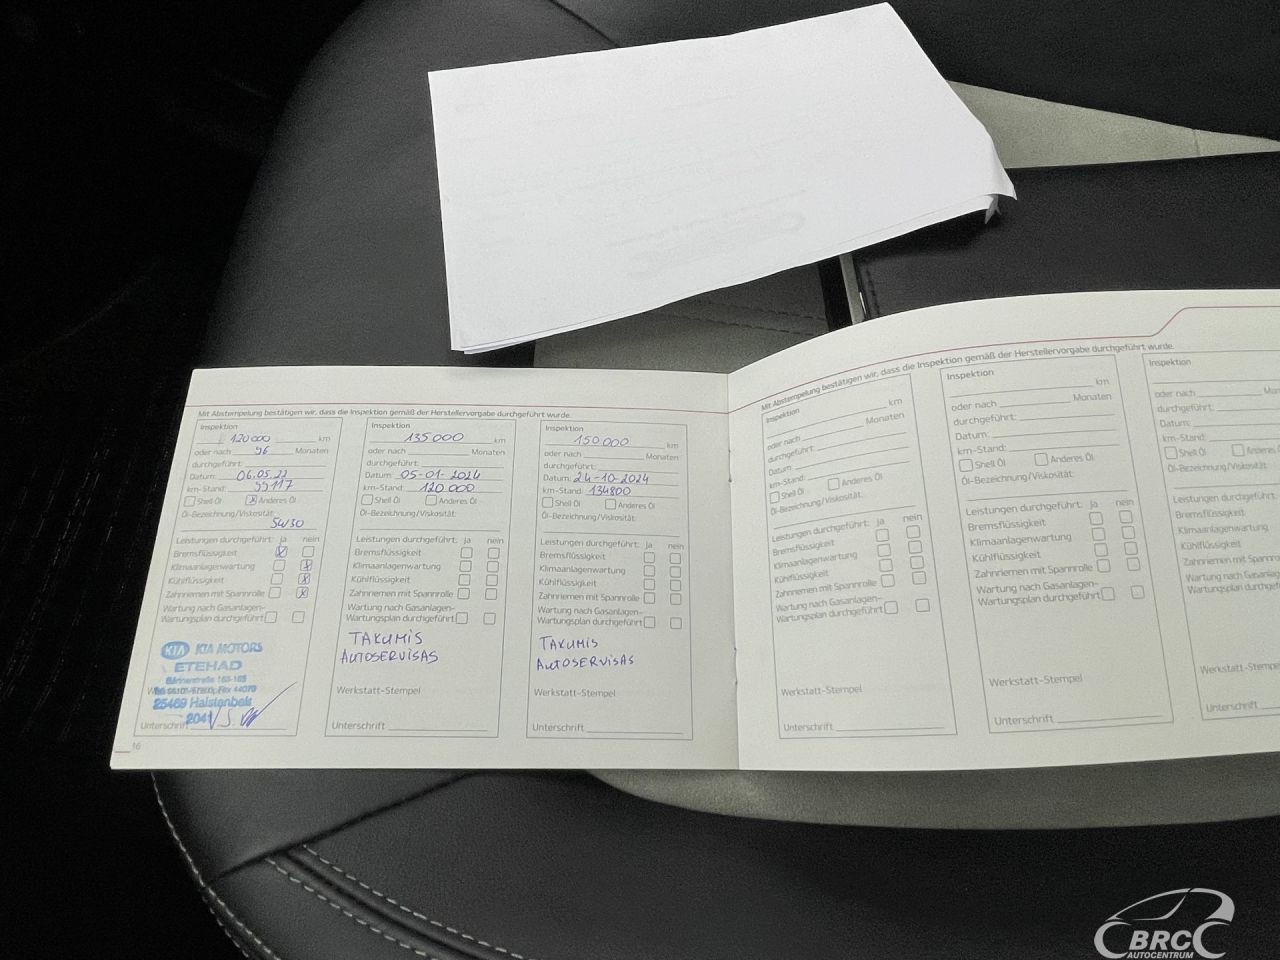 Mit Abstempelung bestätigen wir, dass die Inspektion gemäß der Herstellervorgabe durchgeführt wurde.
Inspektion
120 000 km
oder nach 96 Monaten
durchgeführt:
Datum: 06.05.22
km-Stand: 99117
Shell Öl Anderes Öl
Öl-Bezeichnung/Viskosität:
5W30
Leistungen durchgeführt: ja nein
Bremsflüssigkeit
Klimaanlagenwartung
Kühlflüssigkeit
Zahnriemen mit Spannrolle
Wartung nach Gasanlagen-
Wartungsplan durchgeführt
KIA KIA MOTORS
ETEHAD
25469 Halstenbek
2041
Unterschrift
16
Inspektion
135 000 km
oder nach Monaten
durchgeführt:
Datum: 05-01-2024
km-Stand: 120 000
Shell Öl Anderes Öl
Öl-Bezeichnung/Viskosität:
Leistungen durchgeführt: ja nein
Bremsflüssigkeit
Klimaanlagenwartung
Kühlflüssigkeit
Zahnriemen mit Spannrolle
Wartung nach Gasanlagen-
Wartungsplan durchgeführt
TAKUMIS
AUTOSERVISAS
Werkstatt-Stempel
Unterschrift
Inspektion
150 000 km
oder nach Monaten
durchgeführt:
Datum: 24-10-2024
km-Stand: 134800
Shell Öl Anderes Öl
Öl-Bezeichnung/Viskosität:
Leistungen durchgeführt: ja nein
Bremsflüssigkeit
Klimaanlagenwartung
Kühlflüssigkeit
Zahnriemen mit Spannrolle
Wartung nach Gasanlagen-
Wartungsplan durchgeführt
TAKUMIS
AUTOSERVISAS
Werkstatt-Stempel
Unterschrift
Mit Abstempelung bestätigen wir, dass die Inspektion gemäß der Herstellervorgabe durchgeführt wurde.
Inspektion
km
oder nach Monaten
durchgeführt:
Datum:
km-Stand:
Shell Öl Anderes Öl
Öl-Bezeichnung/Viskosität:
Leistungen durchgeführt: ja nein
Bremsflüssigkeit
Klimaanlagenwartung
Kühlflüssigkeit
Zahnriemen mit Spannrolle
Wartung nach Gasanlagen-
Wartungsplan durchgeführt
Werkstatt-Stempel
Unterschrift
Inspektion
km
oder nach Monaten
durchgeführt:
Datum:
km-Stand:
Shell Öl Anderes Öl
Öl-Bezeichnung/Viskosität:
Leistungen durchgeführt: ja nein
Bremsflüssigkeit
Klimaanlagenwartung
Kühlflüssigkeit
Zahnriemen mit Spannrolle
Wartung nach Gasanlagen-
Wartungsplan durchgeführt
Werkstatt-Stempel
Unterschrift
Inspektion
km
oder nach Monaten
durchgeführt:
Datum:
km-Stand:
Shell Öl Anderes Öl
Öl-Bezeichnung/Viskosität:
Leistungen durchgeführt:
Bremsflüssigkeit
Klimaanlagenwartung
Kühlflüssigkeit
Zahnriemen mit Spannro
Wartung nach Gasanla
Wartungsplan durchgefü
Werkstatt-Stempel
Unterschrift
BRC
AUTOCENTRUM